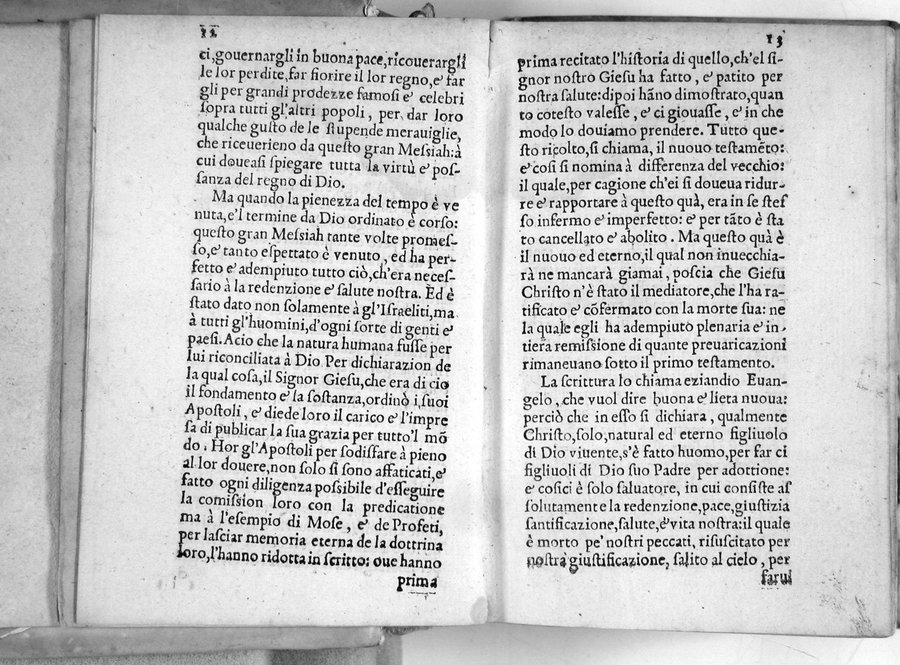 12
ci,gouernargli in buona pace,ricouerargli
le lor perdite,far fiorire il lor regno,e' far
gli per grandi prodezze famosi e' celebri
sopra tutti gl'altri popoli , per dar loro
qualche gusto de le stupende merauiglie,
che riceuerieno da questo gran Messiah:à
cui doueasi spiegare tutta la virtù e' pos-
sanza del regno di Dio.
Ma quando la pienezza del tempo è ve
nuta,e'l termine da Dio ordinato è corso:
questo gran Messiah tante volte promes-
so,e' tanto espettato è venuto , ed ha per-
fetto e' adempiuto tutto ciò,ch'era neces-
sario à la redenzione e' salute nostra. Ed è
stato dato non solamente à gl'Israeliti,ma
à tutti gl'huomini,d'ogni sorte di genti e'
paesi. Acio che la natura humana fusse per
lui riconciliata à Dio Per dichiarazion de
la qual cosa,il Signor Giesu,che era di cio
il fondamento e' la sostanza,ordinò i suoi
Apostoli , e' diede loro il carico e' l'impre
sa di publicar la sua grazia per tutto'l mõ
do . Hor gl'Apostoli per sodisfare à pieno
al lor douere,non solo si sono affaticati,e'
fatto ogni diligenza possibile d'esseguire
la comission loro con la predicatione
ma à l'esempio di Mose , e' de Profeti,
per lasciar memoria eterna de la dottrina
loro,l'hanno ridotta in scritto: oue hanno
prima
13
prima recitato l'historia di quello,ch'el si-
gnor nostro Giesu ha fatto , e' patito per
nostra salute:dipoi hãno dimostrato,quan
to cotesto valesse , e' ci giouasse , e' in che
modo lo douiamo prendere. Tutto que-
sto ricolto,si chiama, il nuouo testamẽto:
e' cosi si nomina à differenza del vecchio:
il quale,per cagione ch'ei si doueua ridur-
re e' rapportare à questo quà, era in se stes
so infermo e' imperfetto: e' per tãto è sta
to cancellato e' abolito . Ma questo quà è
il nuouo ed eterno,il qual non inuecchia-
rà ne mancarà giamai, poscia che Giesu
Christo n'è stato il mediatore,che l'ha ra-
tificato e' cõfermato con la morte sua: ne
la quale egli ha adempiuto plenaria e' in-
tiera remissione di quante preuaricazioni
rimaneuano sotto il primo testamento.
La scrittura lo chiama eziandio Euan-
gelo , che vuol dire buona e' lieta nuoua:
perciò che in esso si dichiara , qualmente
Christo,solo,natural ed eterno figliuolo
di Dio viuente,s'è fatto huomo,per far ci
figliuoli di Dio suo Padre per adottione:
e' cosici è solo saluatore, in cui consiste as
solutamente la redenzione,pace,giustizia
santificazione,salute,e' vita nostra:il quale
è morto pe' nostri peccati, risuscitato per
nostra giustificazione, salito al cielo , per
farui